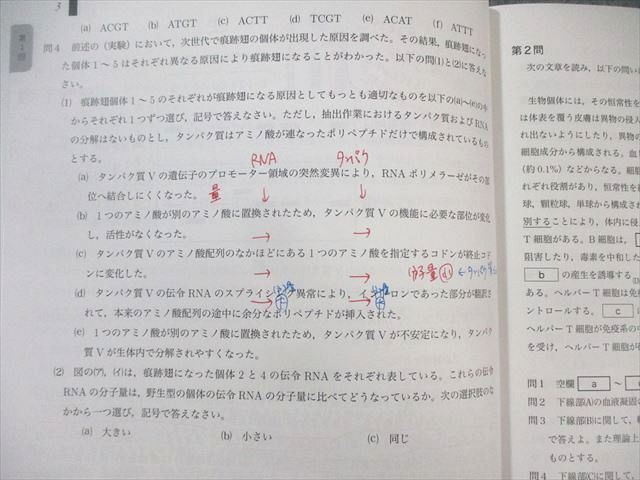 3
第1問
(a) ACGT (b) ATGT (c) ACTT (d) TCGT (e) ACAT (f) ATTT
問4 前述の(実験)において，次世代で痕跡翅の個体が出現した原因を調べた。その結果，痕跡翅になっ
た個体1〜5はそれぞれ異なる原因により痕跡翅になることがわかった。以下の問(1)と(2)に答えな
さい。
(1) 痕跡翅個体1〜5のそれぞれが痕跡翅になる原因としてもっとも適切なものを以下の(a)〜(e)の中
からそれぞれ1つずつ選び，記号で答えなさい。ただし，抽出作業におけるタンパク質およびRNA
の分解はないものとし，タンパク質はアミノ酸が連なったポリペプチドだけで構成されているもの
とする。
RNA タンパク
(a) タンパク質Vの遺伝子のプロモーター領域の突然変異により，RNAポリメラーゼがその部
位へ結合しにくくなった。 量 ↓ ↓
(b) 1つのアミノ酸が別のアミノ酸に置換されたため，タンパク質Vの機能に必要な部位が変化
し，活性がなくなった。 → →
(c) タンパク質Vのアミノ酸配列のなかほどにある1つのアミノ酸を指定するコドンが終止コド
ンに変化した。 → → 分子量 小
(d) タンパク質Vの伝令RNAのスプライシング異常により，イントロンであった部分が翻訳さ
れて，本来のアミノ酸配列の途中に余分なポリペプチドが挿入された。
(e) 1つのアミノ酸が別のアミノ酸に置換されたため，タンパク質Vが不安定になり，タンパク
質Vが生体内で分解されやすくなった。
(2) 図の(ア)，(イ)は，痕跡翅になった個体2と4の伝令RNAをそれぞれ表している。これらの伝令
RNAの分子量は，野生型の個体の伝令RNAの分子量に比べてどうなっているか。次の選択肢のな
かから一つ選び，記号で答えなさい。
(a) 大きい (b) 小さい (c) 同じ
第2問
次の文章を読み，以下の問い
生物個体には，その恒常性を
は体表を覆う皮膚は異物の侵入
れ出ないようにしたり，異物の
細胞成分から構成される。血
(約0.1%)などからなる。細胞
れぞれ役割があり，恒常性を
球，顆粒球，単球から構成され
別することにより，体内に侵
T細胞がある。B細胞は，
阻害したり，毒素を中和した
b の産生を誘導する
ある。ヘルパーT細胞は免
ントロールする。 c
ヘルパーT細胞が免疫系の中
を受け，ヘルパーT細胞が
問1 空欄 a 〜
問2 下線部(A)の血液凝固
問3 下線部(B)に関して，
で答えよ。また理論上
ものとする。
問4 下線部(C)に関して，